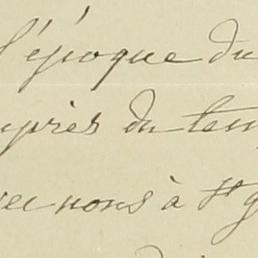 l'époque du
après du tem
vec nous à St g